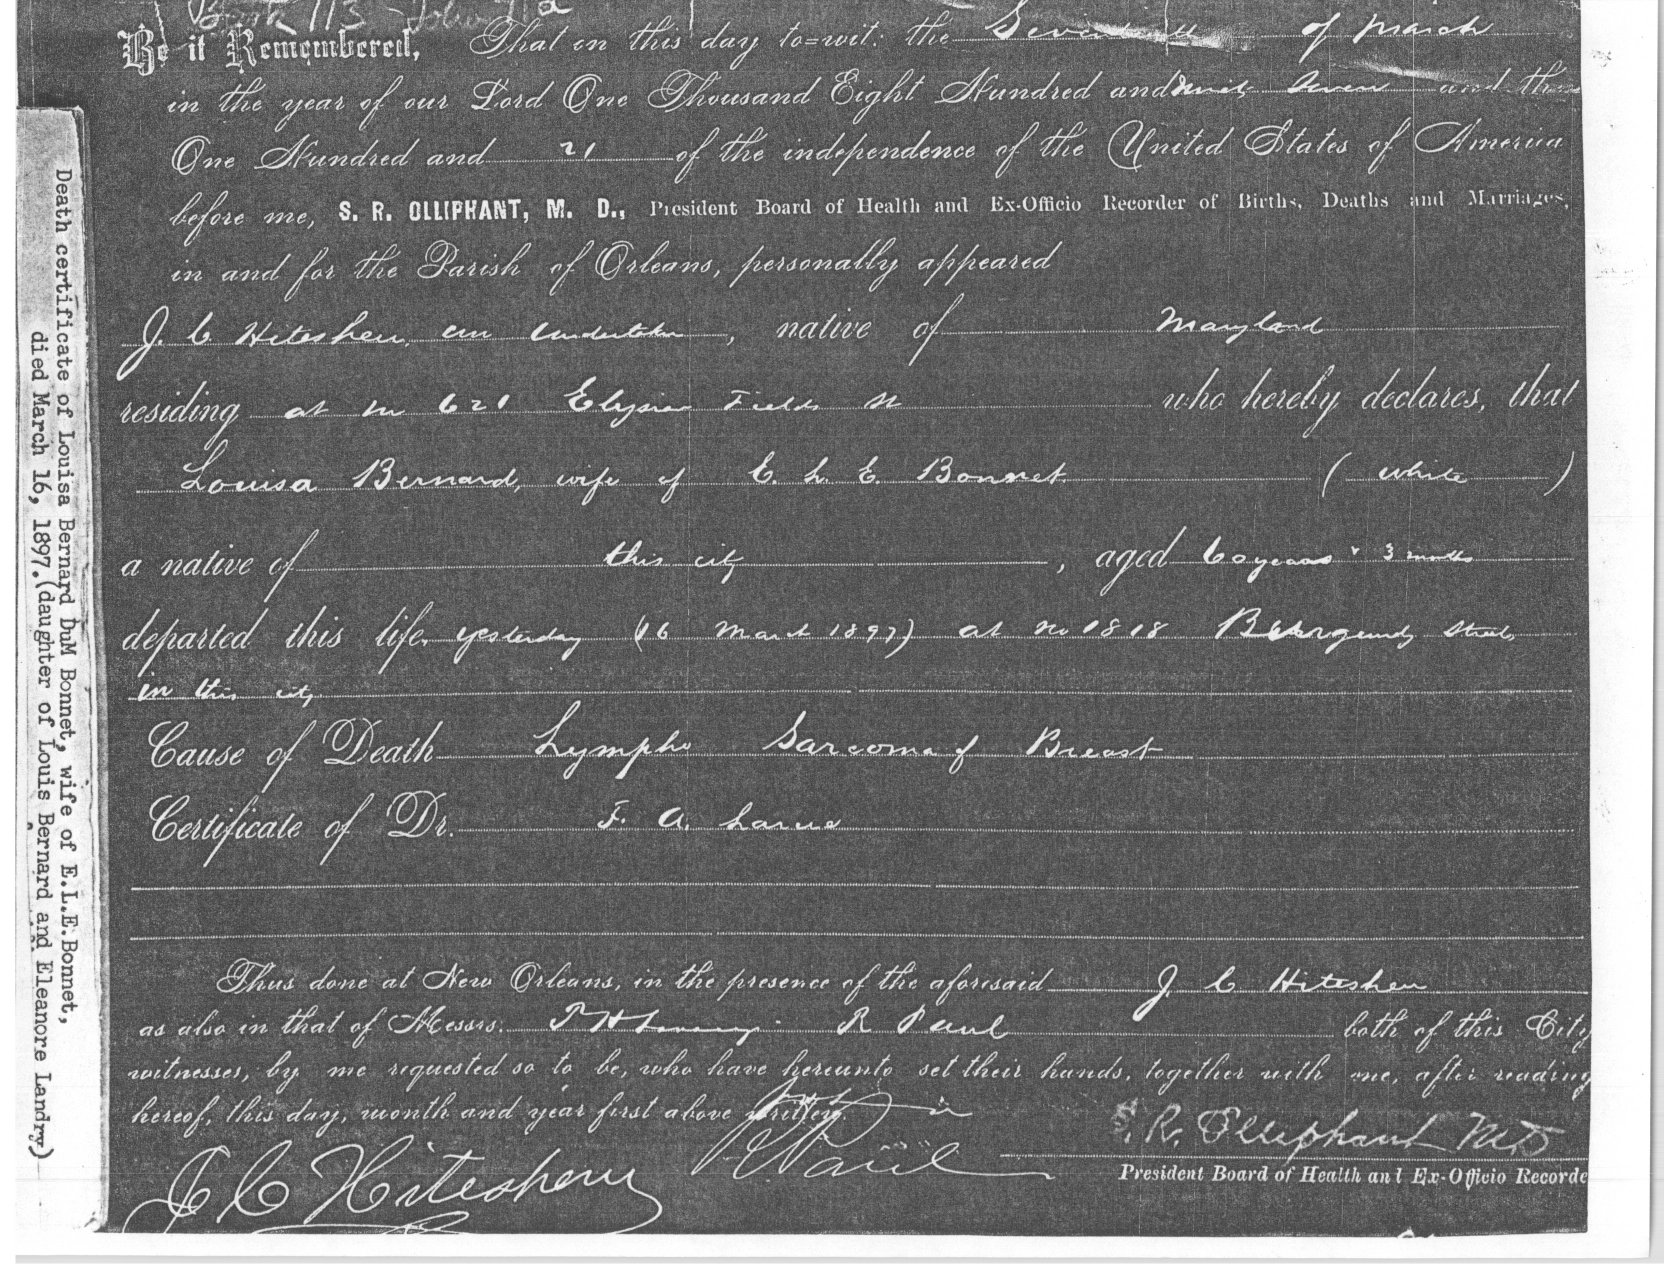 Book 113 - Folio 71a
Be it Remembered, That on this day to=wit: the Seventeenth of March
in the year of our Lord One Thousand Eight Hundred and Ninety Seven and the
One Hundred and 21 of the independence of the United States of America
before me, S. R. OLLIPHANT, M. D., President Board of Health and Ex-Officio Recorder of Births, Deaths and Marriages,
in and for the Parish of Orleans, personally appeared
J. C. Hiteshew, an Undertaker, native of Maryland
residing at no 621 Elysian Fields St who hereby declares, that
Louisa Bernard, wife of E. L. E. Bonnet (white)
a native of this city, aged 60 years & 3 months
departed this life, yesterday (16 March 1897) at no 1818 Burgundy Street,
in this city
Cause of Death Lympho Sarcoma of Breast
Certificate of Dr. F. A. Larue
Thus done at New Orleans, in the presence of the aforesaid J. C Hiteshew
as also in that of Messrs. R Paul both of this City
witnesses, by me requested so to be, who have hereunto set their hands, together with me, after reading
hereof, this day, month and year first above written.
J C Hiteshew
R Paul
S. R. Olliphant MD
President Board of Health and Ex-Officio Recorde
Death certificate of Louisa Bernard DuM Bonnet, wife of E.L.E. Bonnet,
died March 16, 1897. (daughter of Louis Bernard and Eleanore Landry)